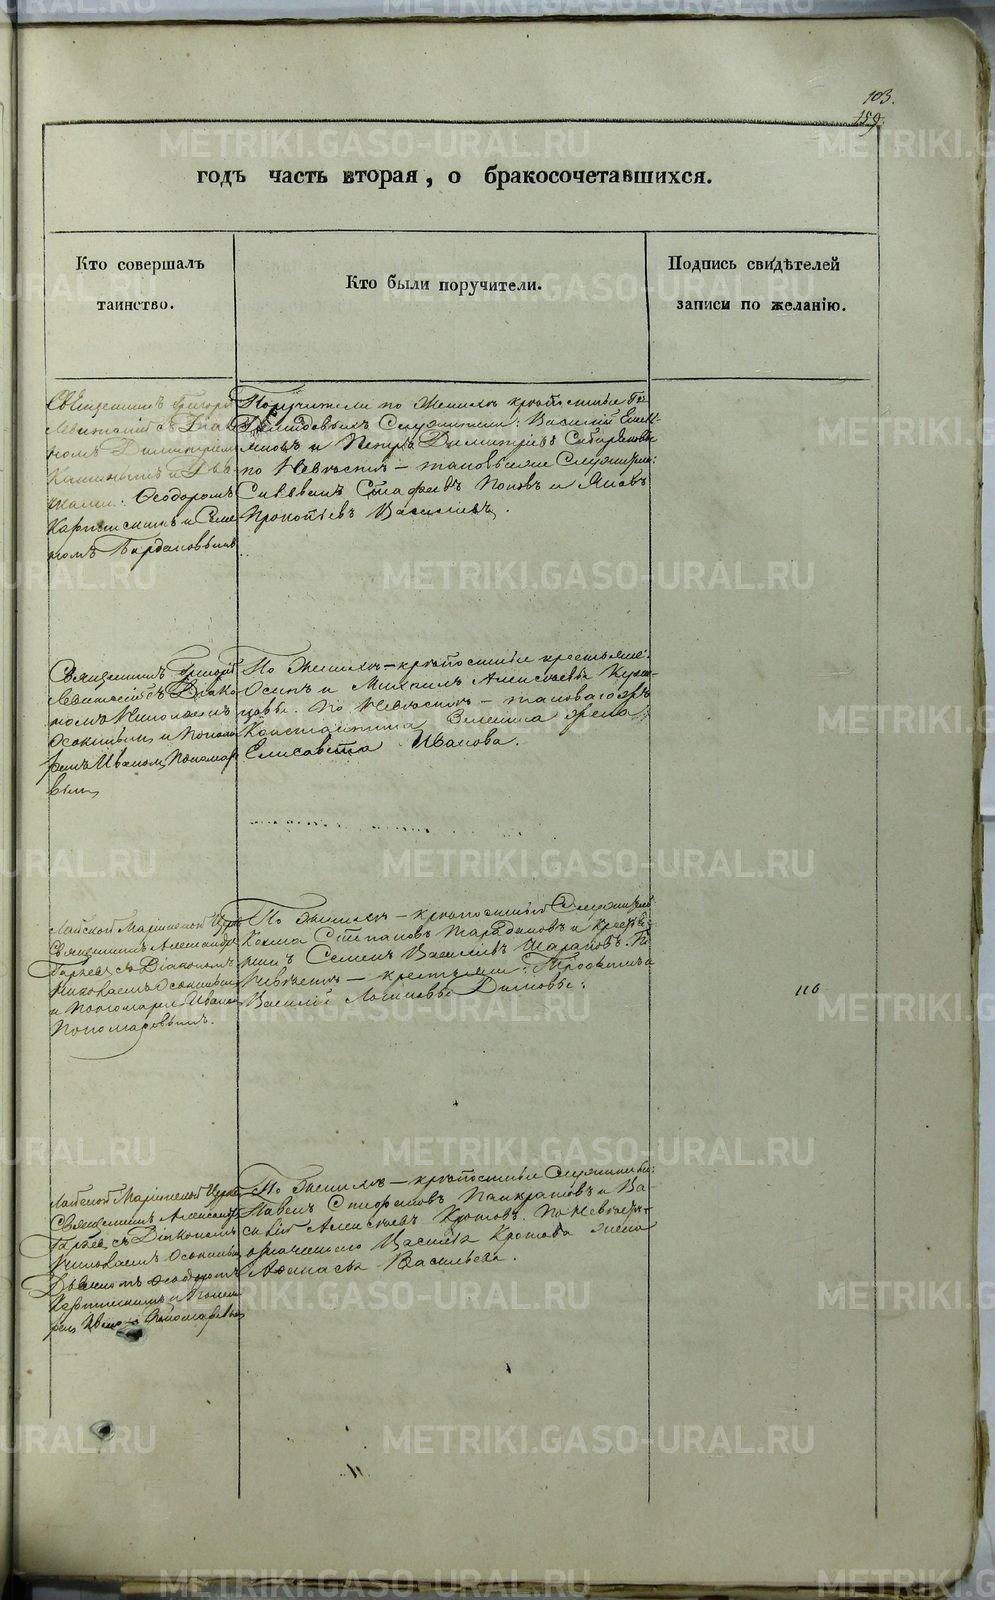 103.
159.
годъ часть вторая, о бракосочетавшихся.
Кто совершалъ
таинство.
Кто были поручители.
Подпись свидѣтелей
записи по желанію.
Священникъ Григорій
Левитскій съ Діако
номъ Димитріемъ
Кашинымъ и Дья
чками: Ѳеодоромъ
Карпинскимъ и Семе
номъ Богдановымъ
Поручители по Женихѣ крѣпостные Гг.
Демидовыхъ Служители: Василій Емель
яновъ и Петръ Димитріевъ
по Невѣстѣ – таковыеже Служители:
Поповъ и Яковъ
Прокопьевъ Васильевъ.
Священникъ Григорій
Левитскій съ Діако
номъ Николаемъ
Осокинымъ и Понома
ремъ Иваномъ Пономаре
вымъ
По Женихѣ – крѣпостные крестьяне:
Осипъ и Михаилъ Алексѣевы
По Невѣстѣ – таковагожъ
Константина Зеленина жена
Елисавета Иванова.
Лайской Маріинской Церкви
Священникъ Александръ
съ Діакономъ
Николаемъ Осокинымъ
и Пономаремъ Иваномъ
Пономаревымъ.
По Женихѣ – крѣпостный Служитель
Козма Степановъ и Крестья
нинъ Семенъ Васильевъ Шараповъ. По
Невѣстѣ – крестьяне:
Василій Логиновы
116
Лайской Маріинской Церкви
Священникъ Александръ
съ Діакономъ
Николаемъ Осокинымъ
Дьячкомъ Ѳеодоромъ
Карпинскимъ и Понома
ремъ Иваномъ Пономаревымъ
По Женихѣ – крѣпостные Служители:
Павелъ Стефановъ Панкратовъ и Ва
силій Алексѣевъ Кротовъ. По Невѣстѣ –
означеннаго Василья Кротова жена
Аѳанасья Васильева.
METRIKI.GASO-URAL.RU